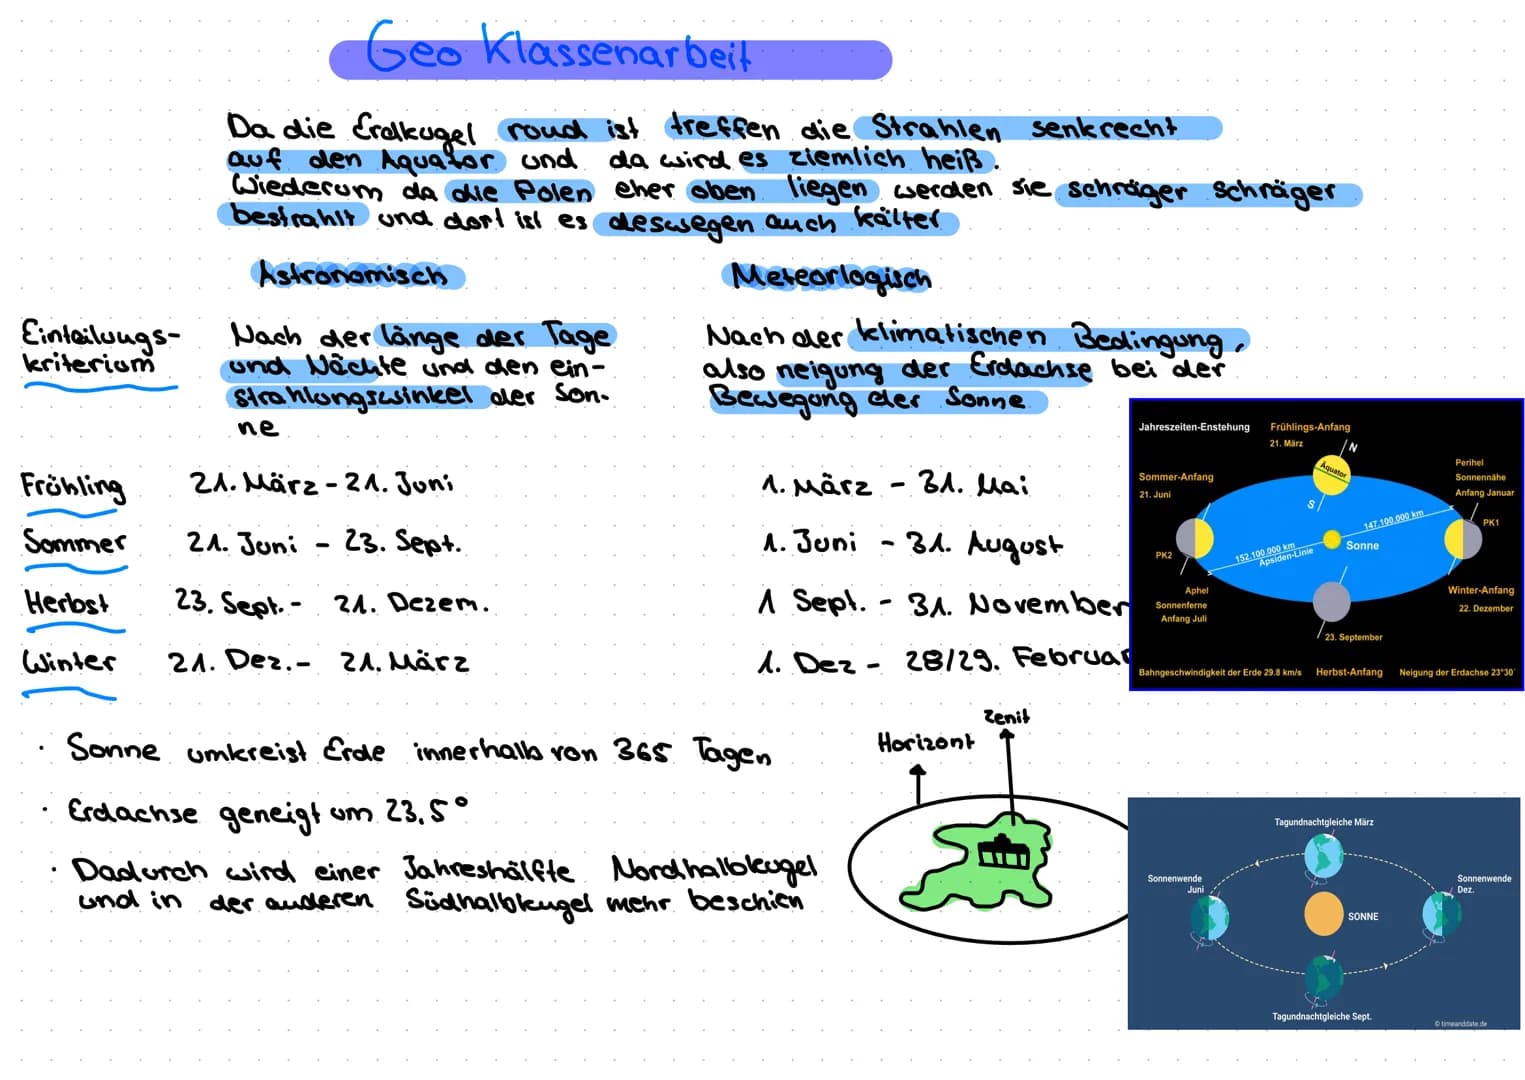 Geo Klassenarbeit
Da die Erdkugel roud ist treffen die Strahlen senkrecht
auf den Äquator und da wird es ziemlich heiß.
Wiederum da die Polen eher oben liegen werden sie schräger schräger
bestrahlt und dort ist es deswegen auch kälter
Astronomisch
Meteorlogisch
Einteilungs-
kriterium
Nach der länge der Tage
und Nächte und den ein-
strahlungswinkel der Son-
ne
Nach der klimatischen Bedingung,
also neigung der Erdachse bei der
Bewegung der Sonne
Frühling 21. März - 21. Juni 1. März - 31. Mai
Sommer 21. Juni - 23. Sept. 1. Juni - 31. August
Herbst 23. Sept. - 21. Dezem. 1 Sept. - 31. November
Winter 21. Dez. - 21. März 1. Dez - 28/29. Februar
· Sonne umkreist Erde innerhalb von 365 Tagen
· Erdachse geneigt um 23,5°
· Dadurch wird einer Jahreshälfte Nordhalbkugel
und in der anderen Südhalbkugel mehr beschien
Zenit
Horizont
Jahreszeiten-Enstehung
Frühlings-Anfang
21. März
N
Äquator
S
Sommer-Anfang
21. Juni
Perihel
Sonnennähe
Anfang Januar
PK1
147.100.000 km
152.100.000 km
Apsiden-Linie
Sonne
PK2
Aphel
Sonnenferne
Anfang Juli
Winter-Anfang
22. Dezember
23. September
Bahngeschwindigkeit der Erde 29.8 km/s
Herbst-Anfang
Neigung der Erdachse 23°30'
Tagundnachtgleiche März
Sonnenwende
Juni
Sonnenwende
Dez.
SONNE
Tagundnachtgleiche Sept.
© timeanddate.de